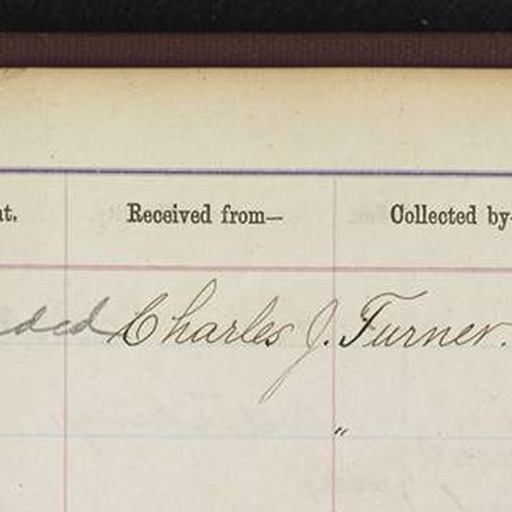 nt. Received from— Collected by-
ded Charles J. Turner.
"